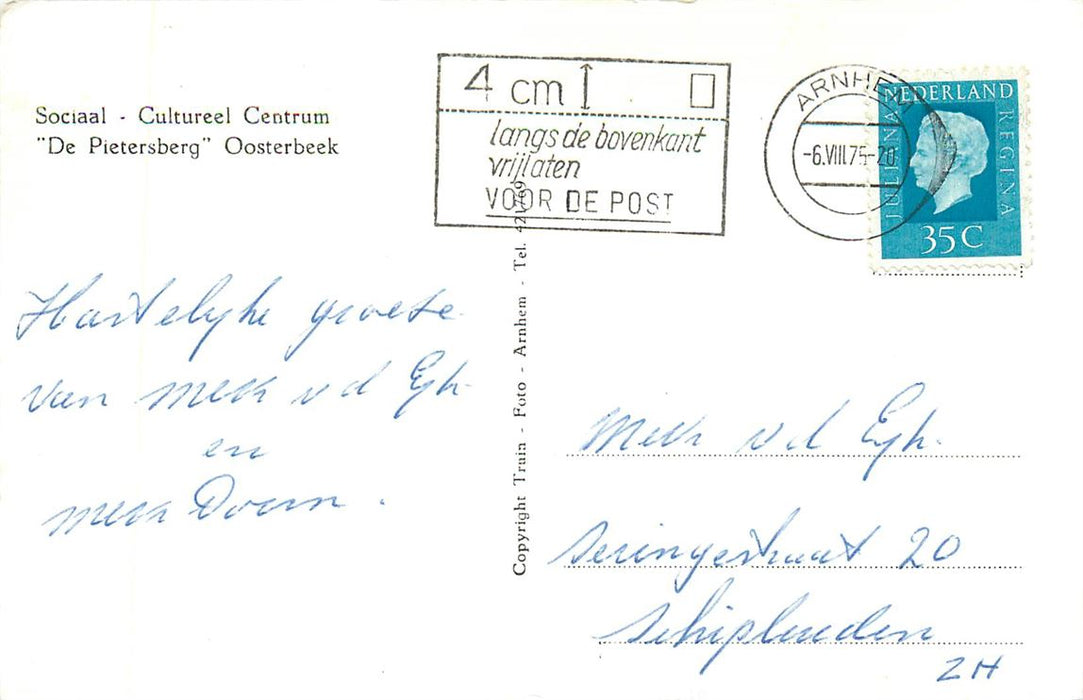 Sociaal - Cultureel Centrum
"De Pietersberg" Oosterbeek
4 cm
langs de bovenkant
vrijlaten
VOOR DE POST
ARNHEM
-6.VIII.75-20
NEDERLAND
JULIANA
REGINA
35 C
Hartelijke groete
van mevr v d Eyk
en
mevr Doorn.
Copyright Truin - Foto - Arnhem - Tel.
Mevr v d Eyk.
Seringestraat 20
Schipluiden
ZH